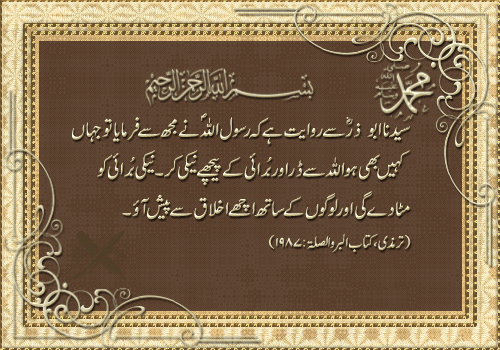 بسم الله الرحمن الرحيم
محمد
سیدنا ابو ذرؓ سے روایت ہے کہ رسول اللہؐ نے مجھ سے فرمایا تو جہاں
کہیں بھی ہو اللہ سے ڈر اور بُرائی کے پیچھے نیکی کر۔ نیکی بُرائی کو
مٹادے گی اور لوگوں کے ساتھ اچھے اخلاق سے پیش آؤ۔
(ترمذی، کتاب البر والصلۃ: ۱۹۸۷)